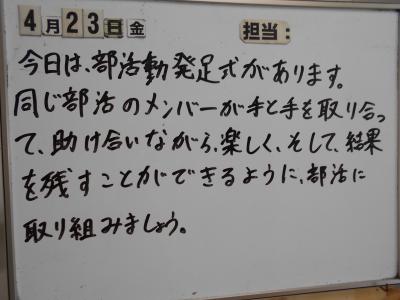 4月23日金 担当:
今日は、部活動発足式があります。
同じ部活のメンバーが手と手を取り合っ
て、助け合いながら、楽しく、そして、結果
を残すことができるように、部活に
取り組みましょう。